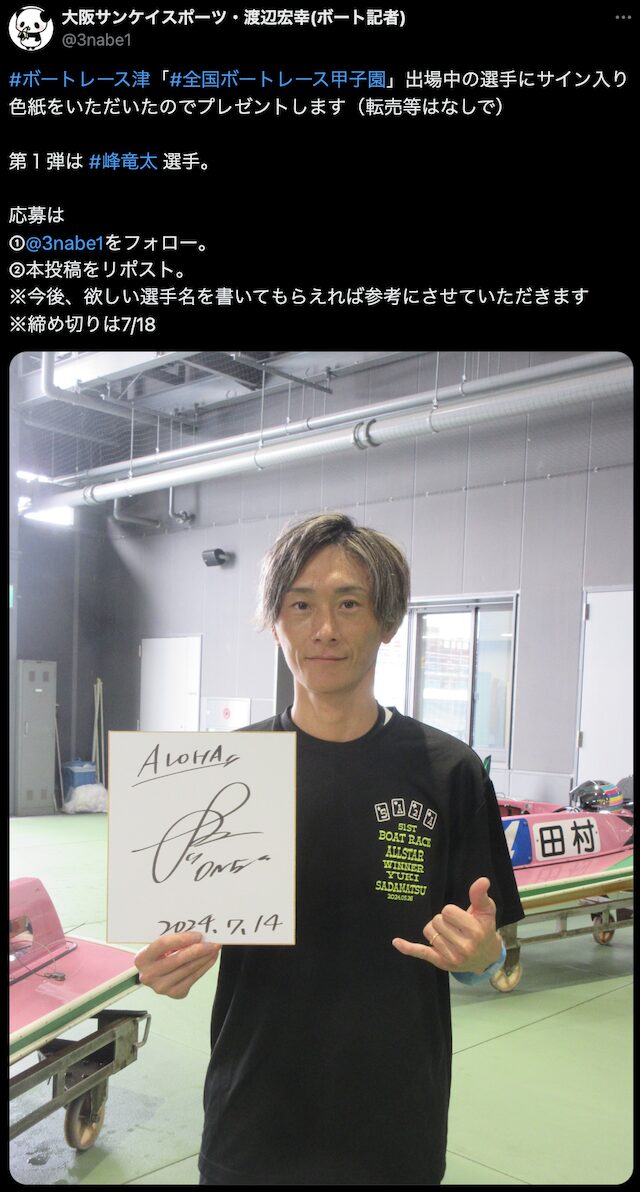 大阪サンケイスポーツ・渡辺宏幸(ボート記者)
@3nabe1
#ボートレース津「#全国ボートレース甲子園」出場中の選手にサイン入り
色紙をいただいたのでプレゼントします（転売等はなしで）
第１弾は #峰竜太 選手。
応募は
①@3nabe1をフォロー。
②本投稿をリポスト。
※今後、欲しい選手名を書いてもらえれば参考にさせていただきます
※締め切りは7/18
ALOHA
"ONE"
2024.7.14
SAGA
51ST
BOAT RACE
ALLSTAR
WINNER
YUKI
SADAMATSU
2024.05.26
田村